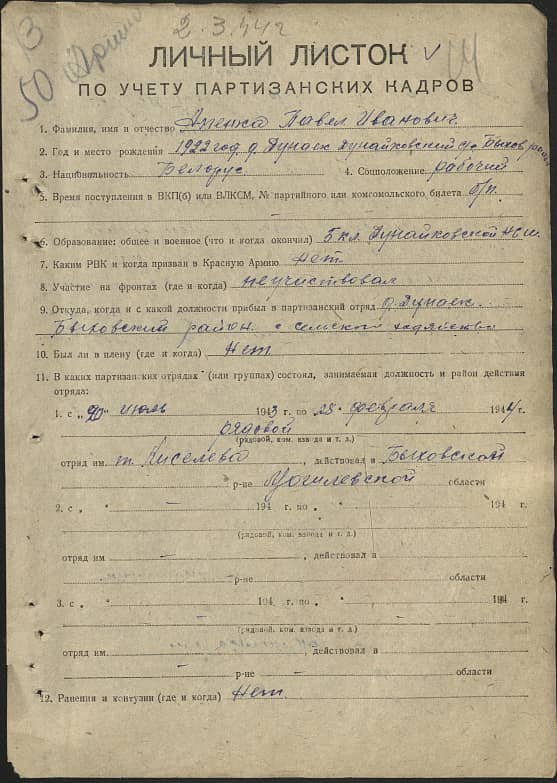 2.3.44г
50
ЛИЧНЫЙ ЛИСТОК
ПО УЧЕТУ ПАРТИЗАНСКИХ КАДРОВ
1. Фамилия, имя и отчество Павел Иванович
2. Год и место рождения 1922 год д. Дунаек Дунайковский с/с Быхов
3. Национальность Белорус 4. Соцположение рабочий
5. Время поступления в ВКП(б) или ВЛКСМ, № партийного или комсомольского билета б/п.
6. Образование: общее и военное (что и когда окончил) 5 кл. Дунайковской НСШ
7. Каким РВК и когда призван в Красную Армию Нет
8. Участие на фронтах (где и когда) неучиствовал
9. Откуда, когда и с какой должности прибыл в партизанский отряд д. Дунаек
Быховский район с сельского хозяйства
10. Был ли в плену (где и когда) Нет
11. В каких партизанских отрядах (или группах) состоял, занимаемая должность и район действия
отряда:
1. с „ " июль 1943 г. по 28 " февраля 1944 г.
рядовой
(рядовой, ком. взвода и т. д.)
отряд им. т. Киселева, действовал в Быховском
р-не Могилевской области
2. с „ — " — 194 г. по „ — " — 194 г.
(рядовой, ком. взвода и т. д.)
отряд им — , действовал в —
— р-не области
3. с „ " 194 г. по „ " 194 г.
(рядовой, ком. взвода и т. д.)
отряд им. — , действовал в
— р-не — области
12. Ранения и контузии (где и когда) Нет